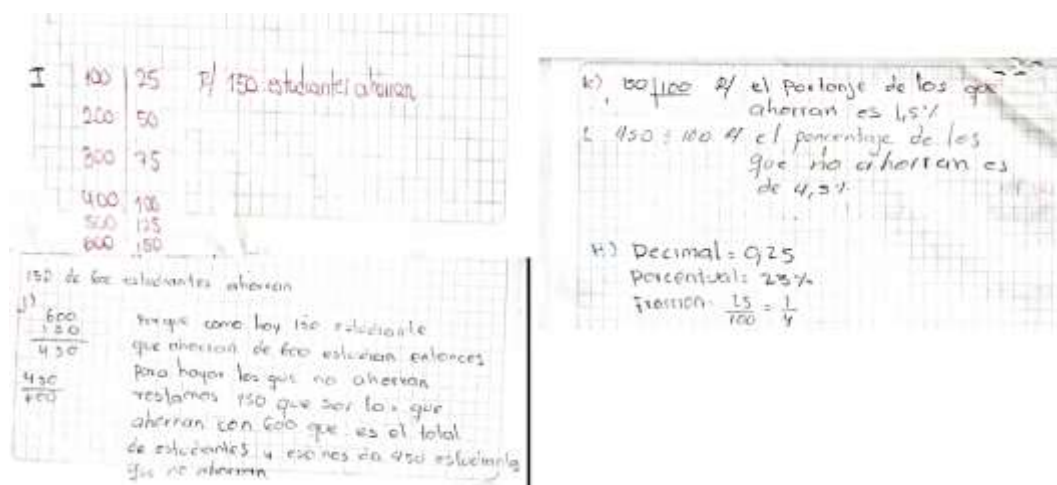 I 100 | 25 R/ 150 estudiantes ahorran
200 | 50
300 | 75
400 | 100
500 | 125
600 | 150
150 de 600 estudiantes ahorran
J)
600
150
450
450
600
porque como hay 150 estudiante
que ahorran de 600 estudian entonces
para hayar los que no ahorran
restamos 150 que son los que
ahorran con 600 que es el total
de estudiantes y eso nos da 450 estudiantes
que no ahorran
k) 150|100 R/ el portonje de los que
ahorran es 1,5%
L 450 ÷ 100 R/ el porcentaje de los
que no ahorran es
de 4,5%
H) Decimal: 0,25
Porcentual: 25%
Fracción: 25/100 = 1/4